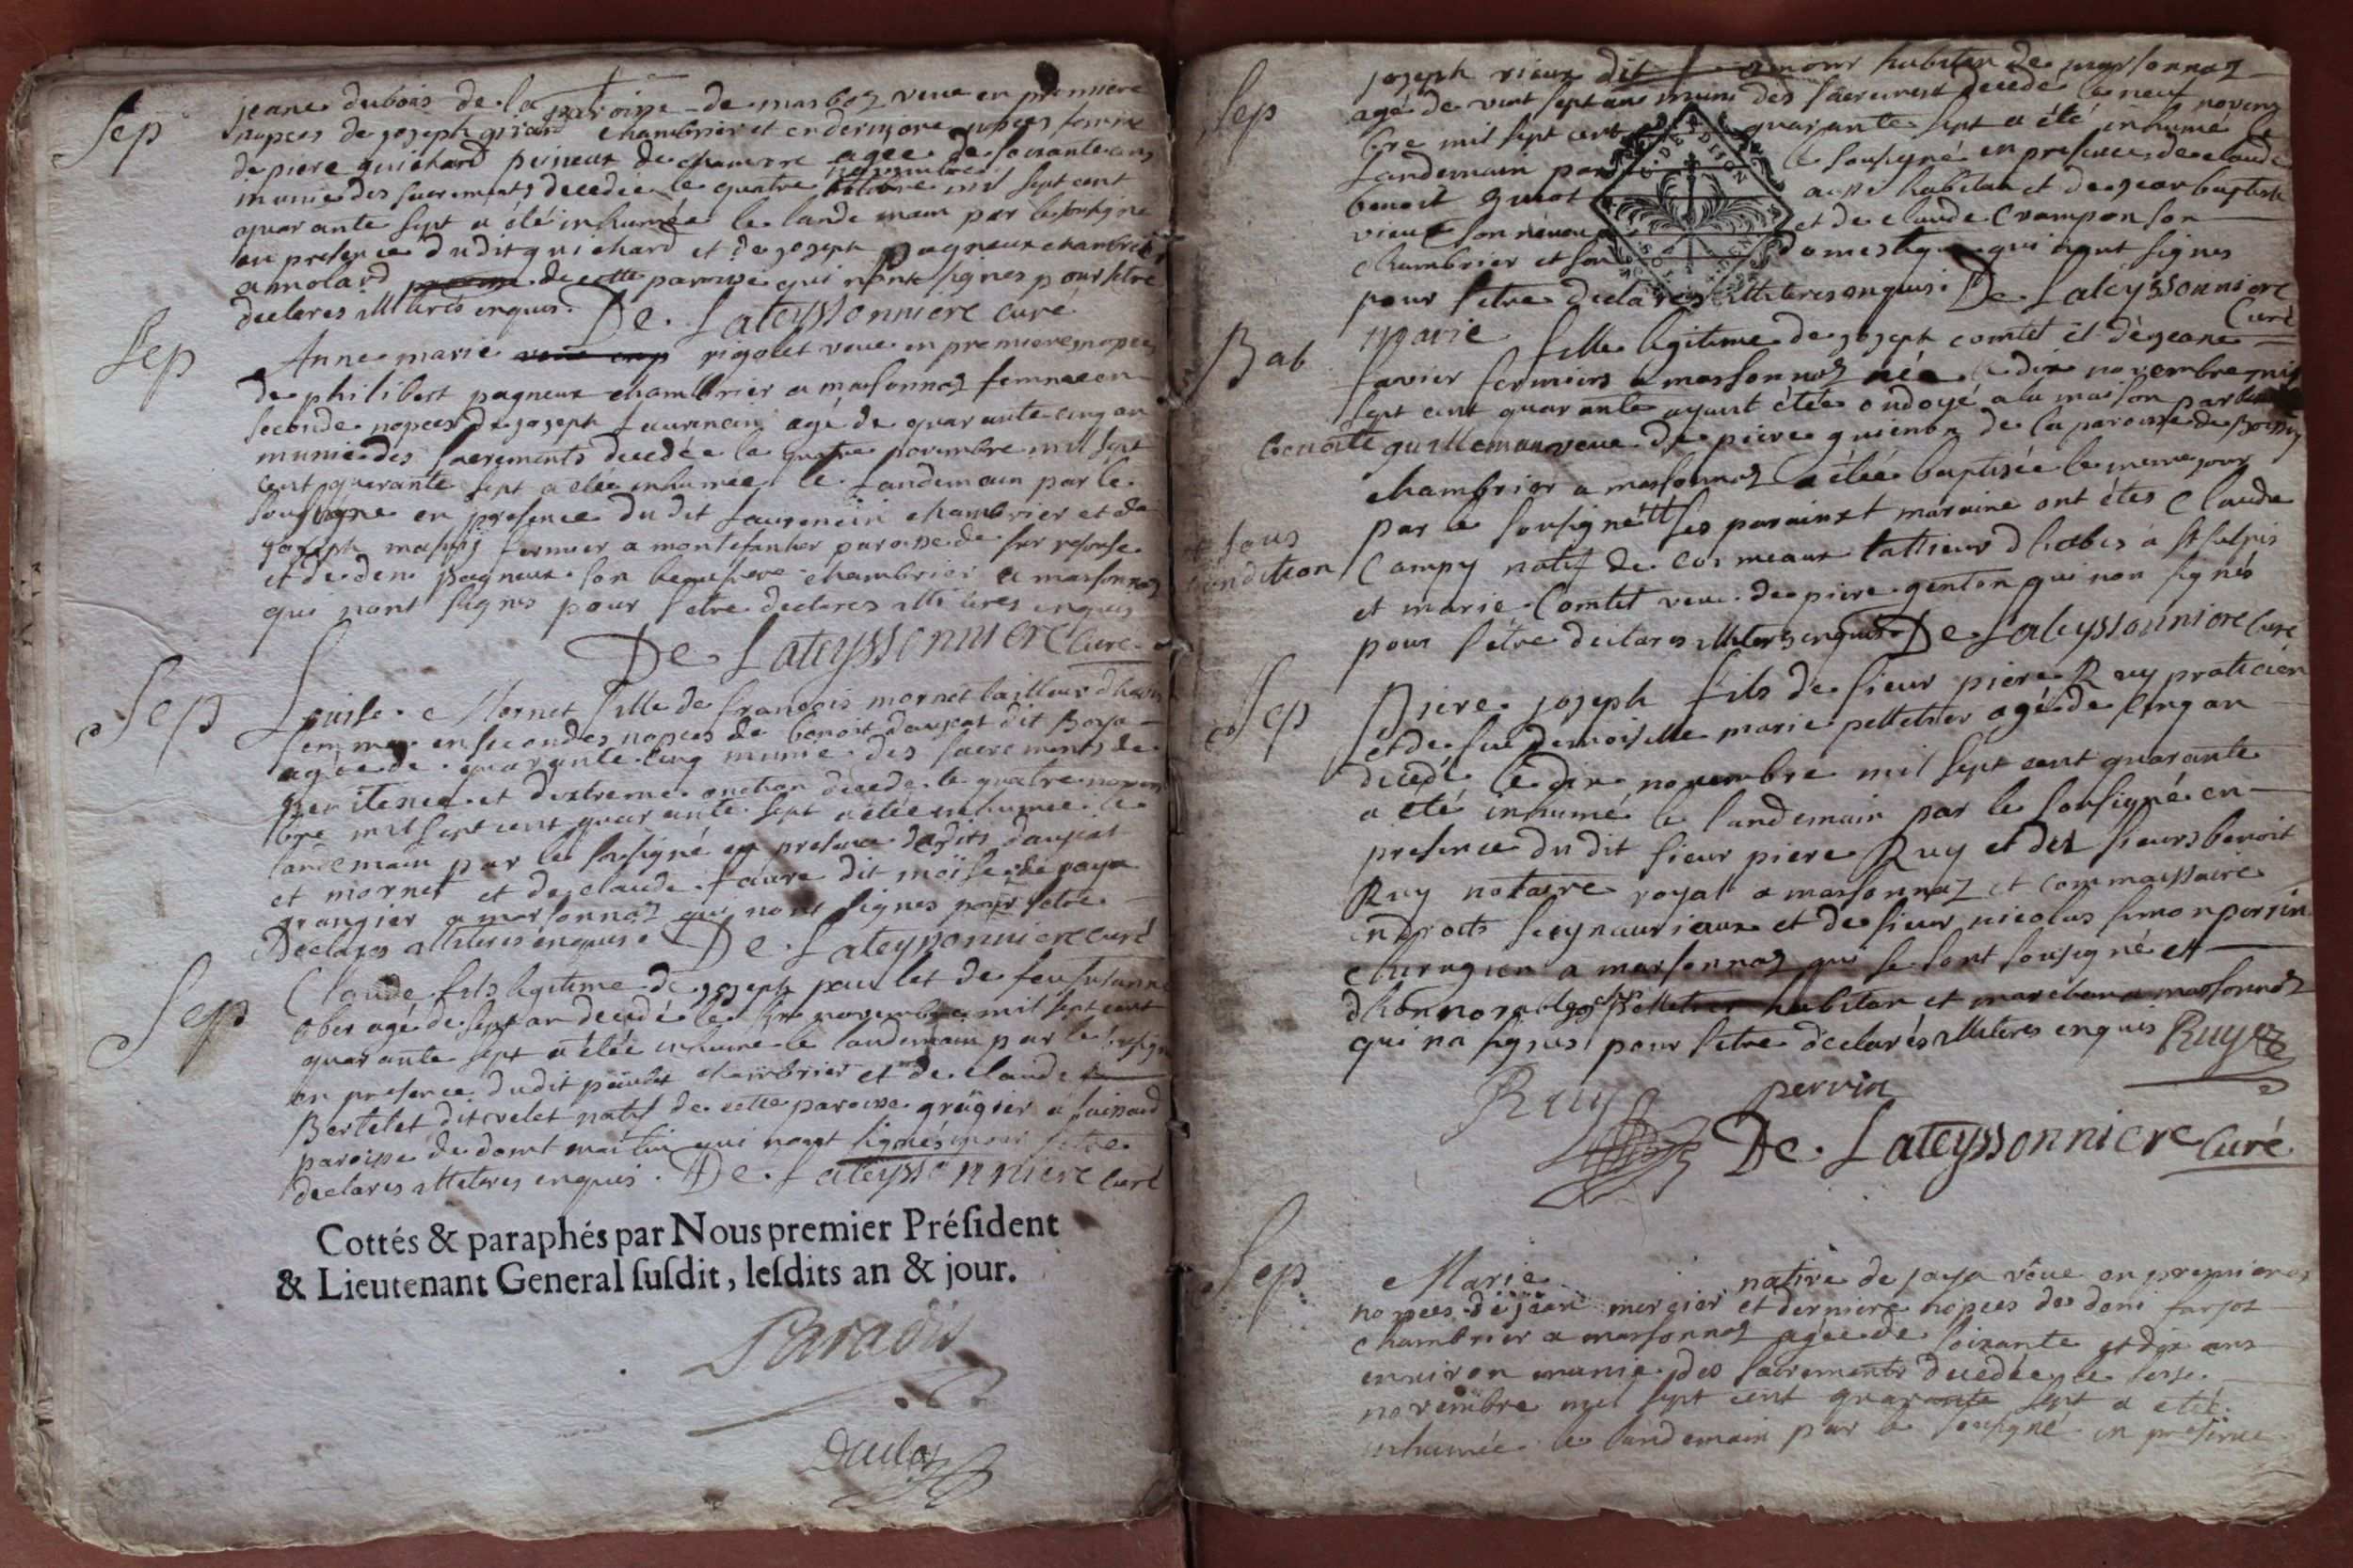 Sep
jeane dubois de la paroise de marboz veuve en premiere
nopces de joseph girard chambrier et en derniere nopces femme
de piere guichard peineur de chanvre agee de soixante ans
munie des sacrements decedée le quatre novembre mil sept cent
quarante sept a été inhumée le landemain par le sousigné
en presence dudit guichard et de joseph pagneux chambrier
a molard de cette paroise qui n'ont signes pour s'etre
declares illiterés enquis. De. Lateyssonniere curé
Sep
Anne marie rigolet veuve en premieres nopces
de philibert pagneux chambrier a marsonnaz femme en
seconde nopces de joseph laurencin agé de quarante cinq an
munie des sacrements decedée le quatre novembre mil sept
cent quarante sept a étée inhumée le landemain par le
sousigné en presence du dit laurencin chambrier et de
joseph fermier a montefanter paroise de sur resouse
et de deni pagneux son beaufrere chambrier a marsonnaz
qui n'ont signes pour s'etre declares illiteres enquis
De. Lateyssonniere Curé
Sep
Louise Mornet fille de francois mornet tailleur dhabis
femme en secondes nopces de benoit daujat dit Boya
agée de quarante cinq munie des sacrements de
penitence et d'extreme onction decedé le quatre novem
bre mil sept cent quarante sept a étée inhumée le
landemain par le sousigné en presence desdits daujat
et mornet et de claude favre dit moïse de jaya
grangier a marsonnaz qui n'ont signes pour s'etre
Declares illiteres enquis. De. Lateyssonniere curé
Sep
Claude fils legitime de joseph paulet de feu susanne
ober agé de sept an decedé le novembre mil sept cent
quarante sept a étée inhumé le landemain par le sousigné
en presence dudit paulet chambrier et de claude
Bertelet dit velet natif de cette paroise grãgier a
paroise de domt martin qui n'ont signés pour s'etre
declares illiteres enquis. De. Lateyssonniere Curé
Cottés & paraphés par Nous premier Préſident
& Lieutenant General ſuſdit, leſdits an & jour.
Paradis
Sep
joseph vieux dit amour habitan de marsonnaz
agé de vint sept an muni des sacrement decedé le neuf novem
bre mil sept cent quarante sept a été inhumé le
landemain par le sousigné en presence de claude
benoit guiot habitan et de jean baptiste
vieux son néveu et de claude Crampon son
chambrier et son domestique qui n'ont signes
pour s'etre declarés illiteres enquis. De. Lateyssonniere
Curé
Bab
marie fille legitime de joseph comtet et de jeane
favier fermiers a marsonnaz née le dix novembre mil
sept cent quarante ayant étée ondoyé a la maison par
benoite guilleman veuve de piere guienon de la paroise de
chambrier a marsonnaz a étée baptisée le meme jour
par le sousigné ses parain et maraine ont étes Claude
et sous
condition
Campy natif de cormeaux tallieur dhabis a st sulpis
et marie Comtet veuve de piere genton qui non signés
pour s'être declares illiteres enquis. De. Lateyssonniere Curé
Sep
Piere joseph fils de sieur piere Ruy praticien
et de fue demoiselle marie pelletier agé de cinq an
decedé le dix novembre mil sept cent quarante
a été inhumé le landemain par le sousigné en
presence du dit sieur piere Ruy et des sieurs benoit
Ruy notaire royal a marsonnaz et commaissaire
en droits seigneuriaux et de sieur nicolas simon perrin
chirugien a marsonnaz qui se sont sousigné et
dhonnorable pelletier habitan et marchan a marsonnaz
qui na signes pour s'etre declarés illiteres enquis Ruy
Ruy perrin
De. Lateyssonniere Curé
Sep
Marie native de jaya veuve en premieres
nopces de jean mercier et derniere nopces de deni farjot
chambrier a marsonnaz agée de soixante et dix ans
environ munie des sacrements decedée le
novembre mil sept cent quarante sept a été
inhumée le landemain par le sousigné en presence